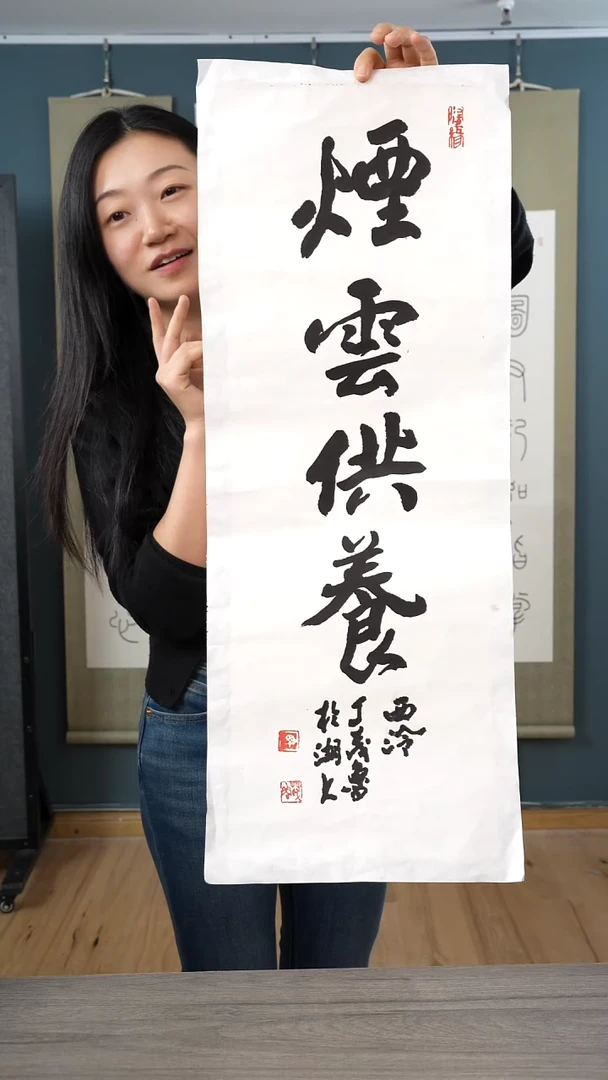 煙雲供養
西泠
丁茂魯
於湖上